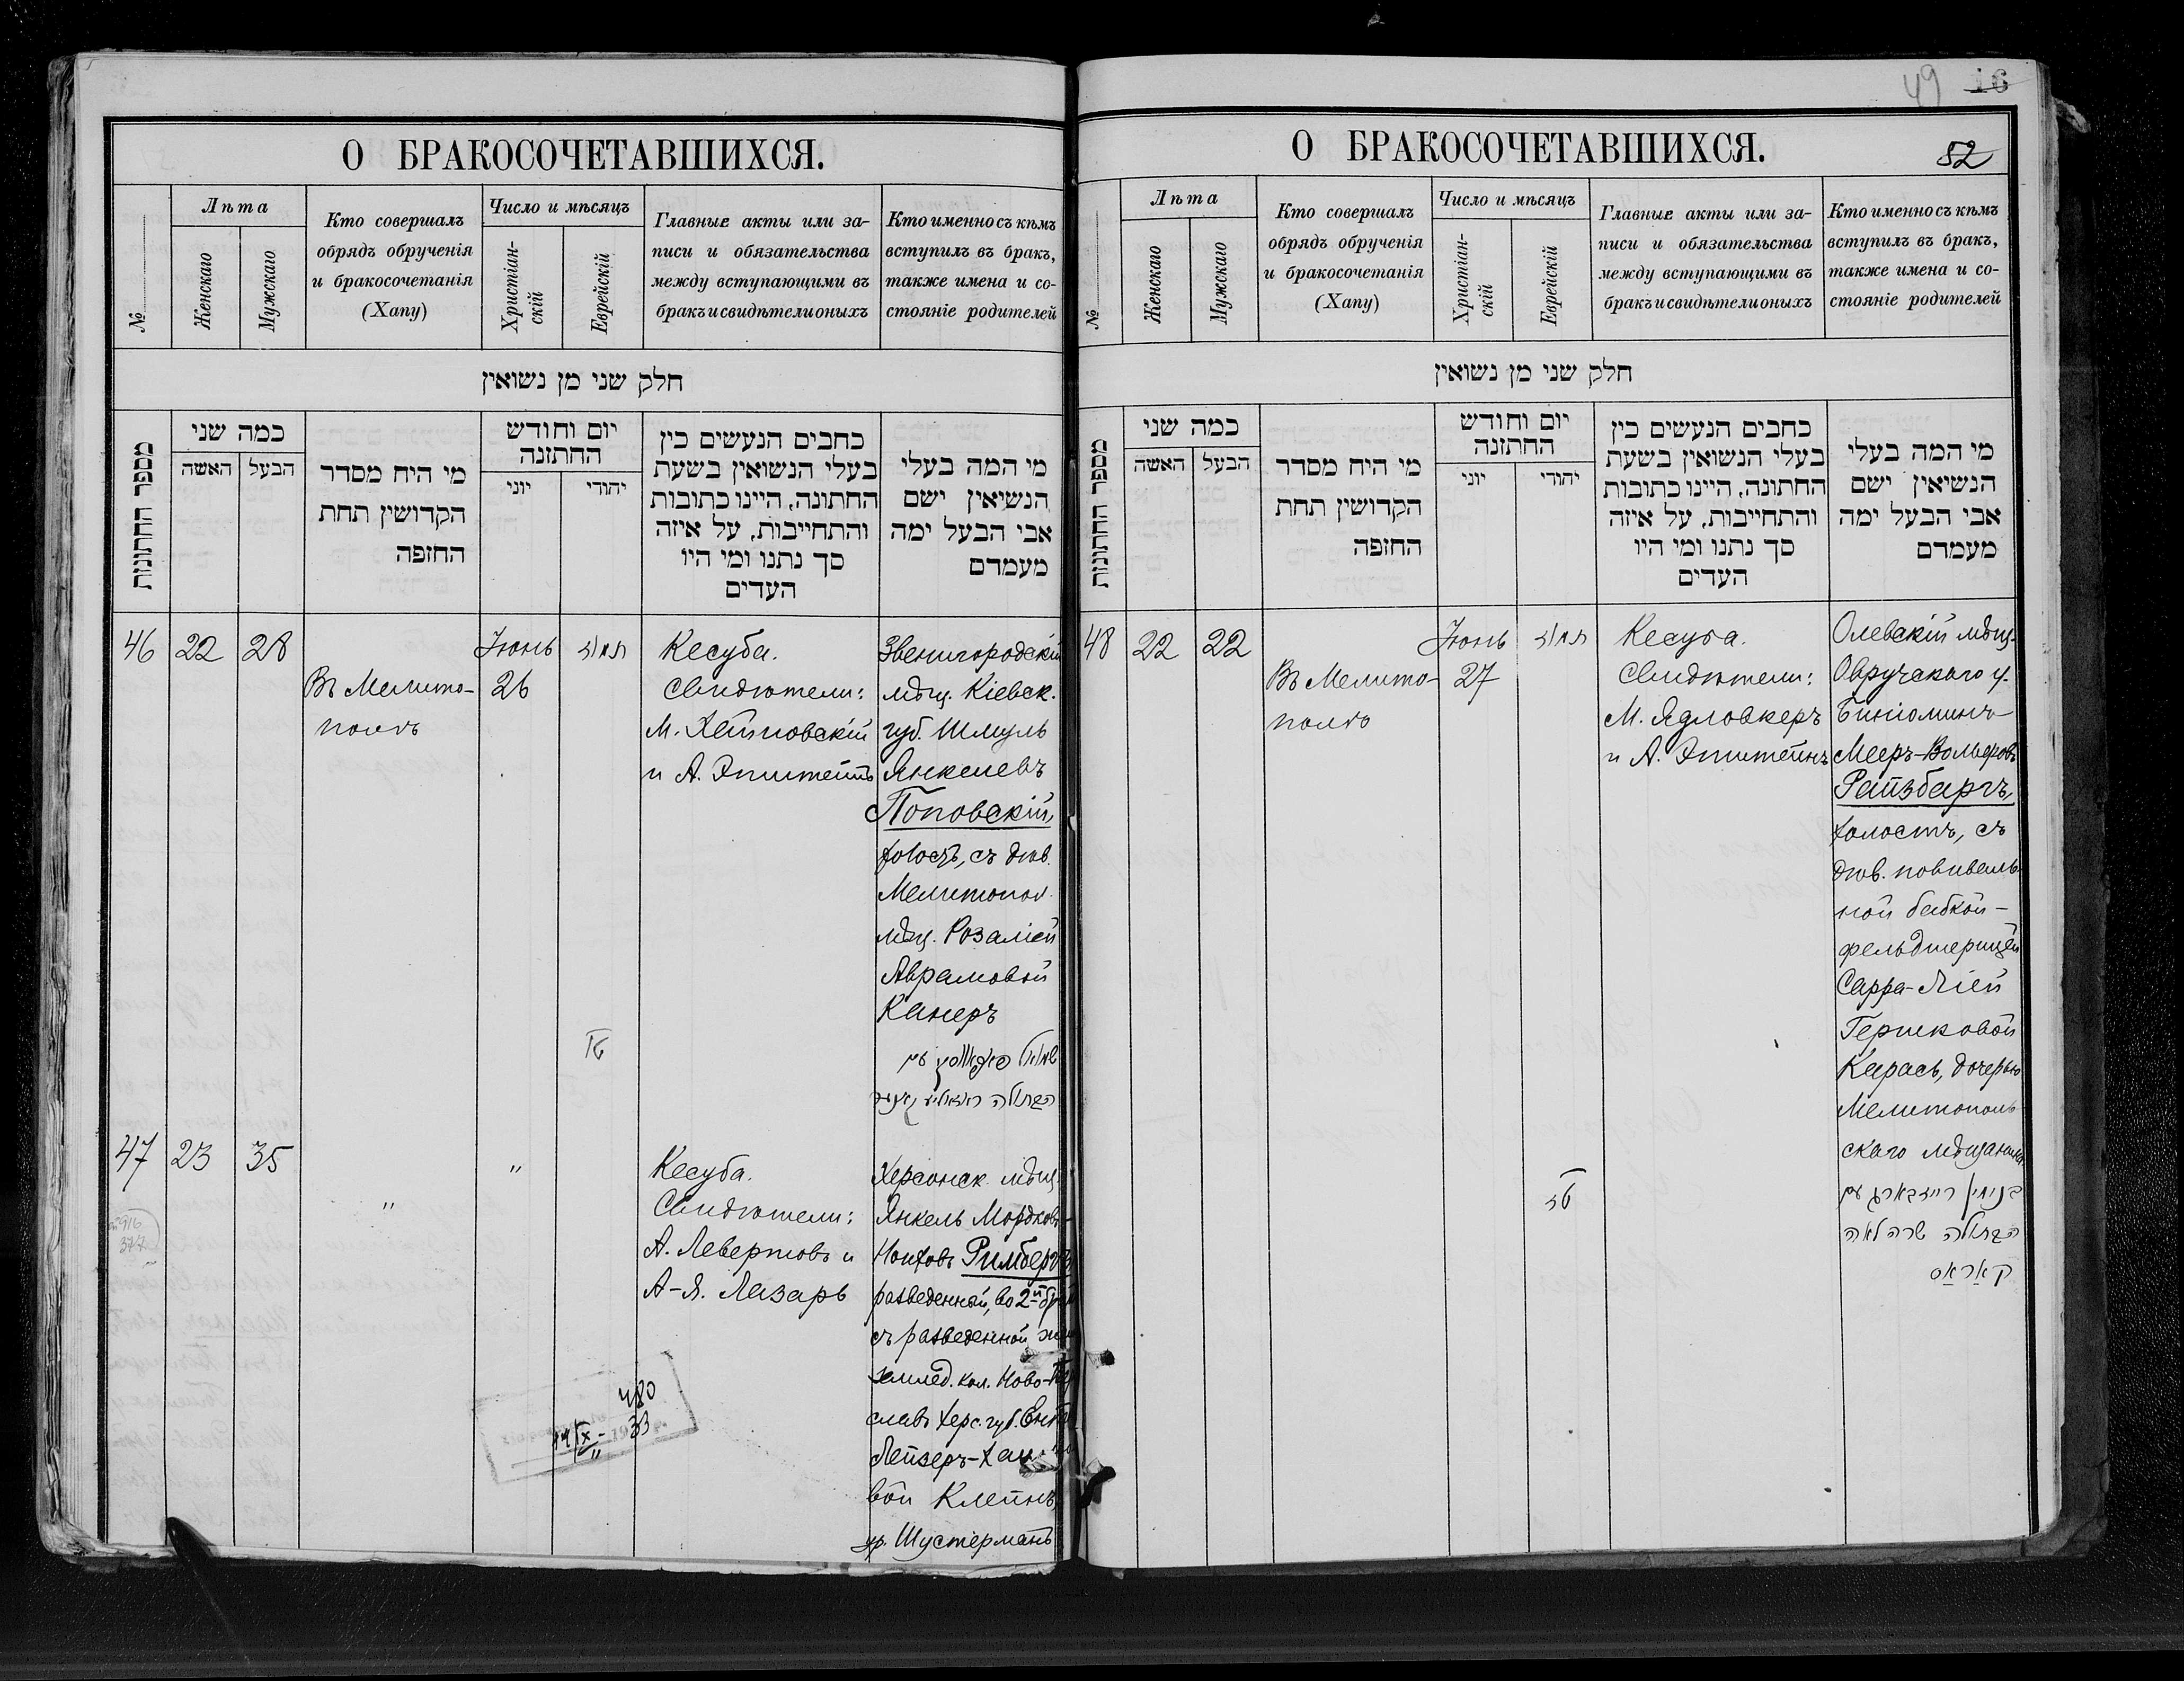 О БРАКОСОЧЕТАВШИХСЯ.
№
Лѣта
Женскаго
Мужскаго
Кто совершалъ
обрядъ обрученія
и бракосочетанія
(Хапу)
Число и мѣсяцъ
Христіан-
скій
Еврейскій
Главныя акты или за-
писи и обязательства
между вступающими въ
бракъ и свидѣтели оныхъ
Кто именно съ кѣмъ
вступилъ въ бракъ,
также имена и со-
стояніе родителей
חלק שני מן נשואין
מספר החתונות
כמה שני
האשה
הבעל
מי היח מסדר
הקדושין תחת
החזפה
יום וחודש
החתזנה
יוני
יהודי
כחבים הנעשים כין
בעלי הנשואין בשעת
החתונה, היינו כתובות
והתחייבות, על איזה
סך נתנו ומי היו
העדים
מי המה בעלי
הנשיאין ישם
אבי הבעל ימה
מעמדם
46
22
28
Въ Мелито-
полѣ
Іюнь
26
תמוז
Кесуба.
Свидѣтели:
М. Хейповскій
и А. Эпштейнъ
Звенигородскій
мѣщ. Кіевск.
губ. Шмуль
Янкелевъ
Поповскій,
холостъ, съ дѣв.
Мелитопол.
мѣщ. Розаліей
Аврамовой
Канеръ
עם
הבתולה
47
23
35
"
"
Кесуба.
Свидѣтели:
А. Левертовъ и
А-Я. Лазарь
Херсонск. мѣщ.
Янкель Мордков-
Нохтовъ Римбергъ
разведенный, во 2й
съ разведенной
землед. кол. Ново-
славъ Херс. губ.
Лейзеръ-
вой Клейнъ,
ур. Шустерманъ
480
33
49 16
О БРАКОСОЧЕТАВШИХСЯ.
52
№
Лѣта
Женскаго
Мужскаго
Кто совершалъ
обрядъ обрученія
и бракосочетанія
(Хапу)
Число и мѣсяцъ
Христіан-
скій
Еврейскій
Главныя акты или за-
писи и обязательства
между вступающими въ
бракъ и свидѣтели оныхъ
Кто именно съ кѣмъ
вступилъ въ бракъ,
также имена и со-
стояніе родителей
חלק שני מן נשואין
מספר החתונות
כמה שני
האשה
הבעל
מי היח מסדר
הקדושין תחת
החזפה
יום וחודש
החתזנה
יוני
יהודי
כחבים הנעשים כין
בעלי הנשואין בשעת
החתונה, היינו כתובות
והתחייבות, על איזה
סך נתנו ומי היו
העדים
מי המה בעלי
הנשיאין ישם
אבי הבעל ימה
מעמדם
48
22
22
Въ Мелито-
полѣ
Іюнь
27
תמוז
Кесуба.
Свидѣтели:
М. Ядловкеръ
и А. Эпштейнъ
Олевскій мѣщ.
Овручскаго у.
Биніоминъ-
Мееръ-Вольфовъ
Райзбаргъ,
холостъ, съ
дѣв. повиваль-
ной бабкой-
фельдшерицей
Сарра-Ліей
Гершковой
Карась, дочерью
Мелитополь-
скаго мѣщанина
בנימין רייזבארג עם
הבתולה שרה לאה
קאראס